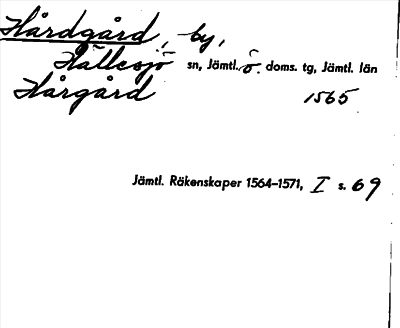 Hårdgård, by,
Hällesjö sn, Jämtl. ö. doms. tg, Jämtl. län
Hårgård 1565
Jämtl. Räkenskaper 1564–1571, I s. 69